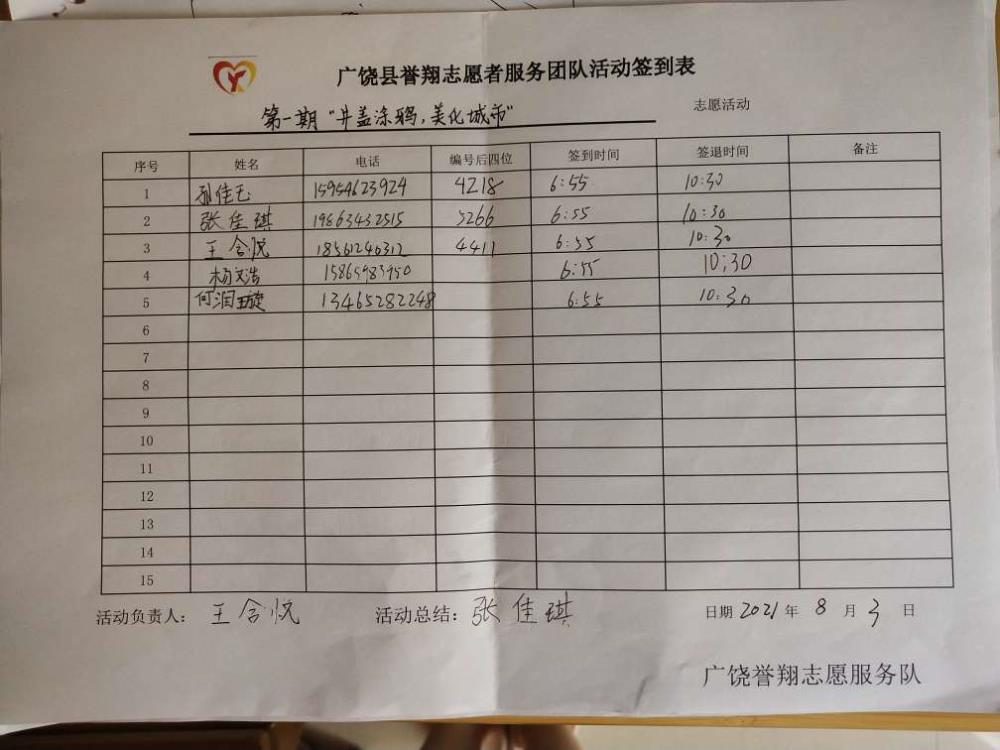 广饶县誉翔志愿者服务团队活动签到表
第一期"井盖涂鸦,美化城市" 志愿活动
序号 姓名 电话 编号后四位 签到时间 签退时间 备注
1 孙佳玉 15954623924 4218 6:55 10:30
2 张佳琪 19863432515 5266 6:55 10:30
3 王含悦 18561240312 4411 6:55 10:30
4 杨文浩 6:55 10:30
5 何润璇 13465282248 6:55 10:30
6
7
8
9
10
11
12
13
14
15
活动负责人: 王含悦 活动总结: 张佳琪 日期 2021 年 8 月 3 日
广饶誉翔志愿服务队